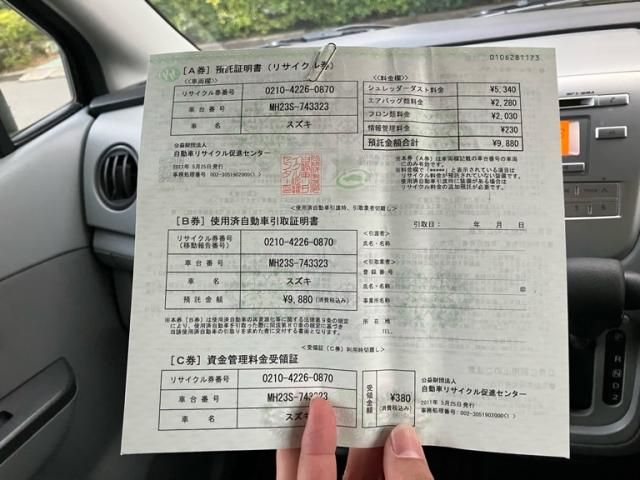 0106281173
[A券] 預託証明書(リサイクル券)
<車両欄>
リサイクル券番号 0210-4226-0870
車台番号 MH23S-743323
車名 スズキ
公益財団法人
自動車リサイクル促進センター
2011年 5月25日発行
<料金欄>
シュレッダーダスト料金 ¥5,340
エアバッグ類料金 ¥2,280
フロン類料金 ¥2,030
情報管理料金 ¥230
預託金額合計 ¥9,880
※本券[A券]は車両欄記載の車台番号の車両にのみ有効です。
<使用済自動車引渡時、引取業者切離し>
[B券] 使用済自動車引取証明書
リサイクル券番号 0210-4226-0870
(移動報告番号)
車台番号 MH23S-743323
車名 スズキ
預託金額 ¥9,880 (消費税込み)
引取日: 年 月 日
<引渡者>
氏名・名称:
<引取業者>
登録番号:
氏名・名称:
事業所名:
所在地:
TEL:
<受領証[C券]利用時切離し>
[C券] 資金管理料金受領証
リサイクル券番号 0210-4226-0870
車台番号 MH23S-743323
車名 スズキ
受領金額 ¥380
(消費税込み)
公益財団法人
自動車リサイクル促進センター
2011年 5月25日発行
R
N
D
2